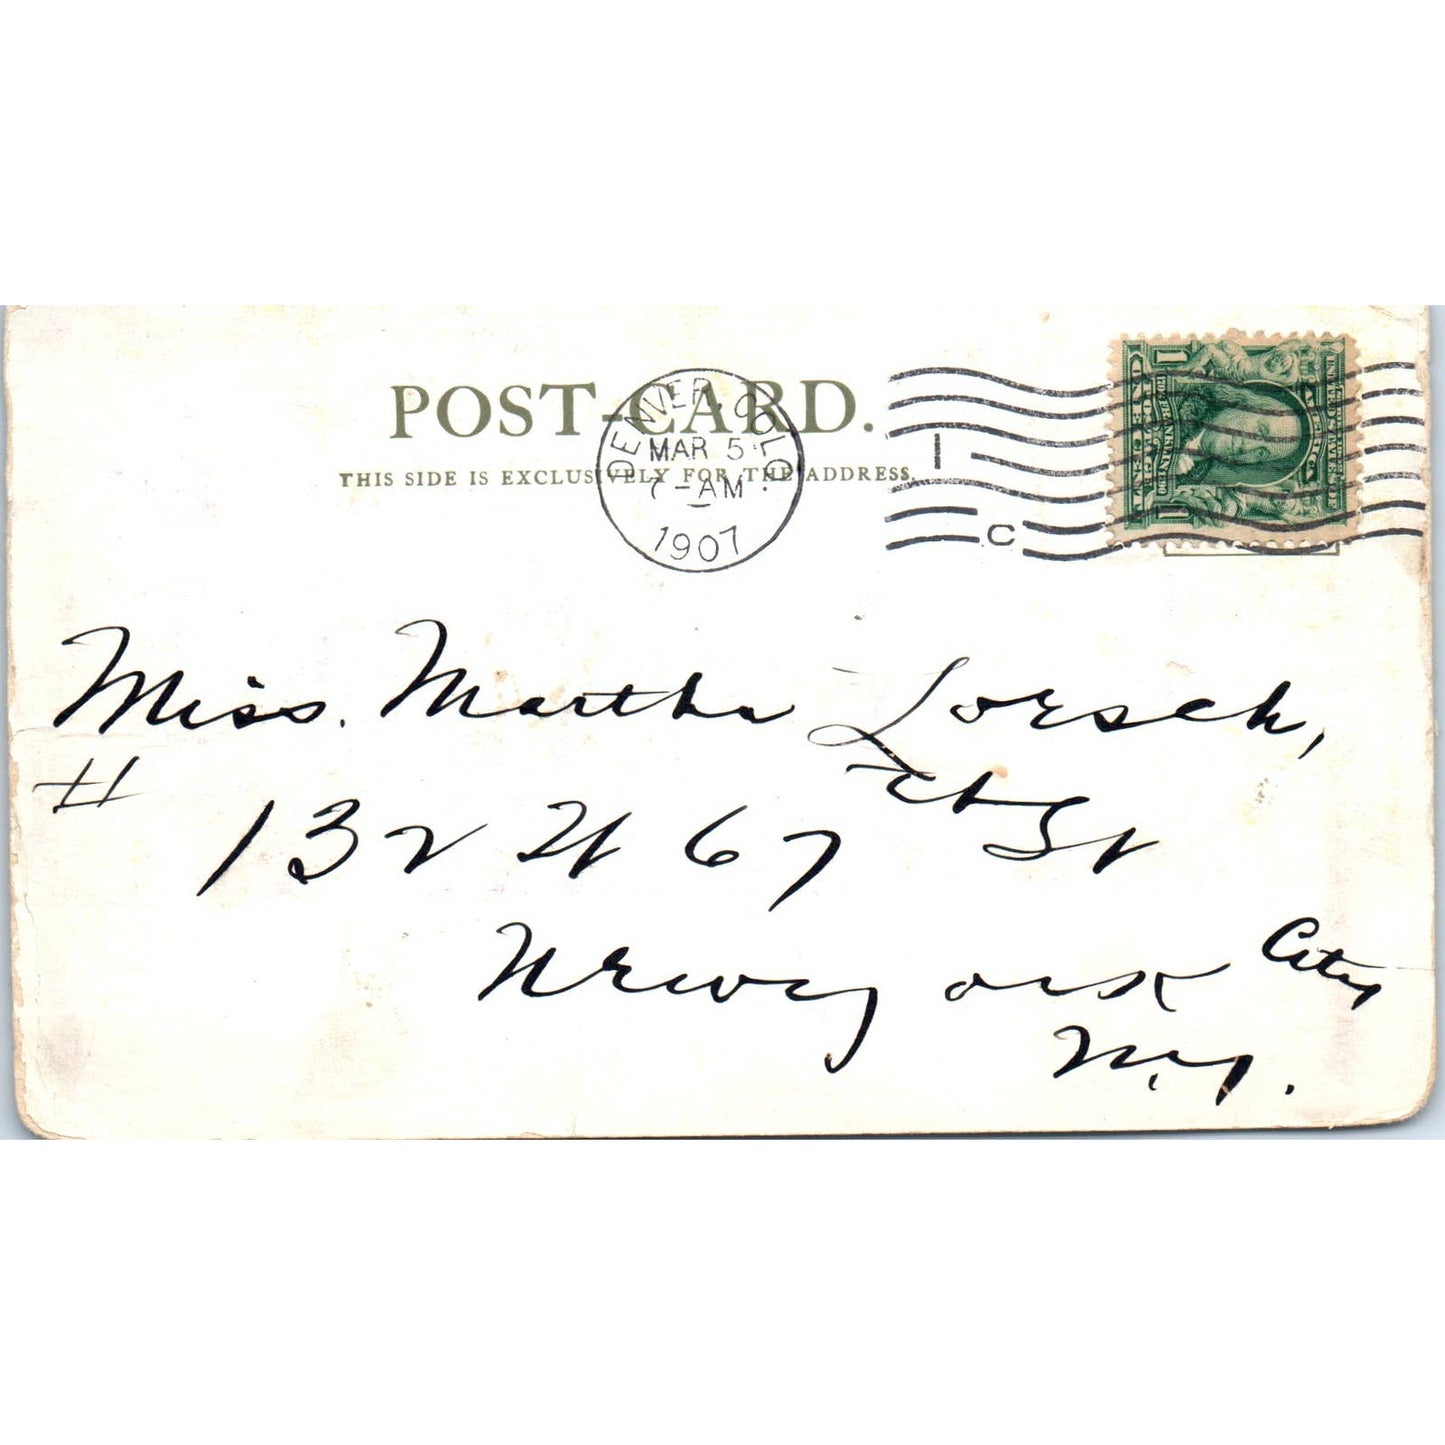 POST-CARD.
THIS SIDE IS EXCLUSIVELY FOR THE ADDRESS.
DENVER, COLO.
MAR 5
7-AM
1907
1
C
1 1
Miss. Martha Lorsch,
# 132 W 67 th St
New york City
N.Y.